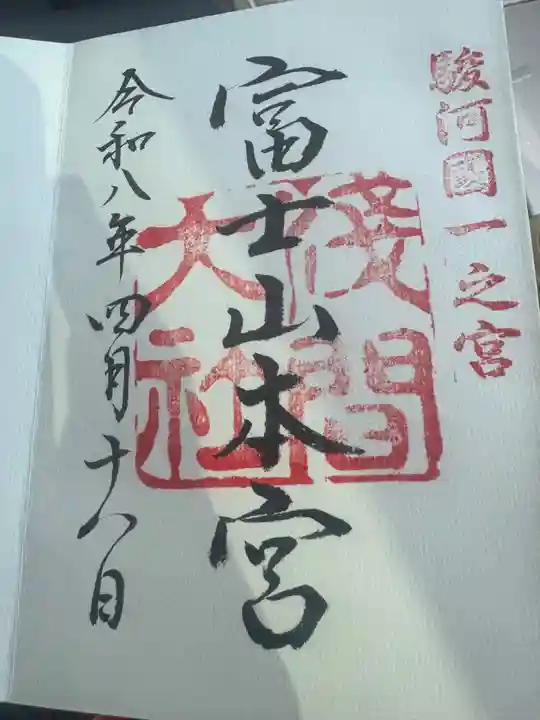 駿河國一之宮
富士山本宮
浅間大社
令和八年四月十八日